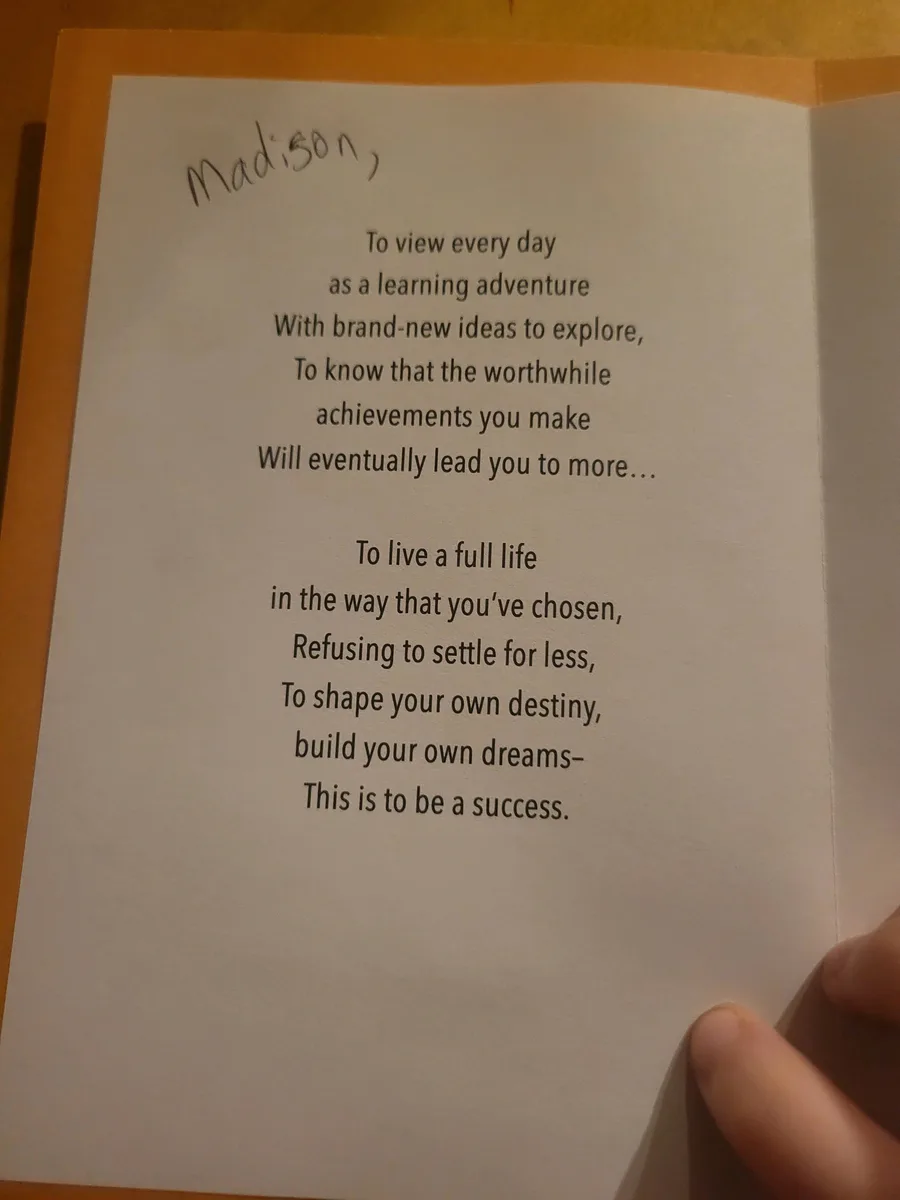 Madison,
To view every day
as a learning adventure
With brand-new ideas to explore,
To know that the worthwhile
achievements you make
Will eventually lead you to more...
To live a full life
in the way that you've chosen,
Refusing to settle for less,
To shape your own destiny,
build your own dreams–
This is to be a success.